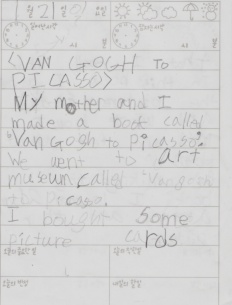 1 월 21 일 요일
<VAN GOGH TO
PICASSO>
My mother and I
made a boot called
"Van Gogh to Picasso".
We went to art
museum called "Vangogh
to Picasso.
I bought some
picture cards